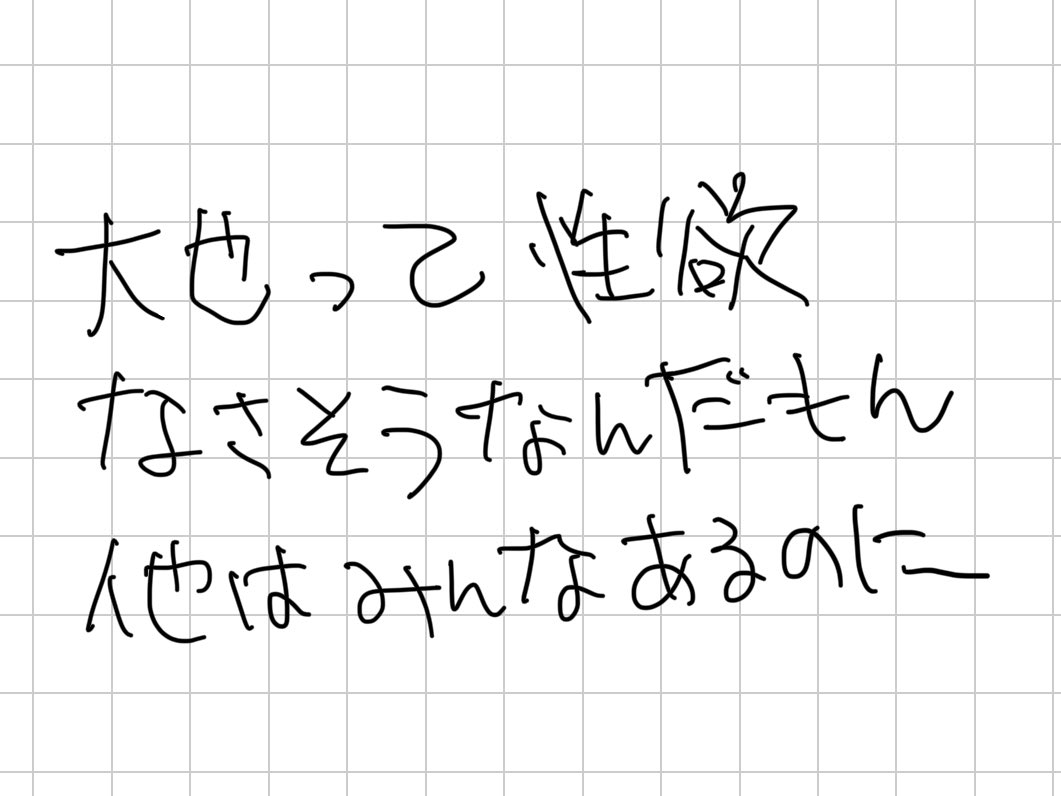 大也って性欲
なさそうなんだもん
他はみんなあるのに